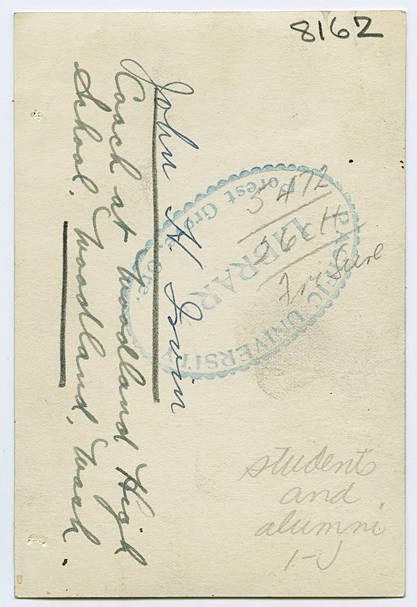 8162
John H Irwin
Coach at Woodland High
School, Woodland, Wash.
PACIFIC UNIVERSITY
LIBRARY
Forest Grove, Ore.
students
and
alumni
1-J